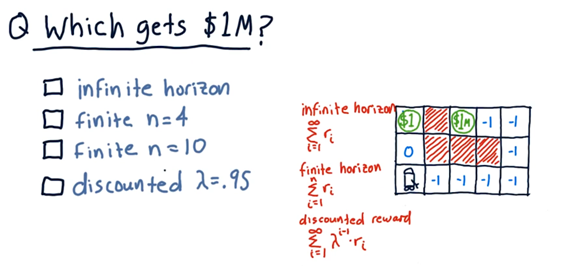 Q Which gets $1M?
infinite horizon
finite n=4
finite n=10
discounted λ=.95
infinite horizon
∞
∑ rᵢ
i=1
finite horizon
n
∑ rᵢ
i=1
discounted reward
∞
∑ λⁱ⁻¹·rᵢ
i=1
$1 $1M -1 -1
0 -1
-1 -1 -1 -1